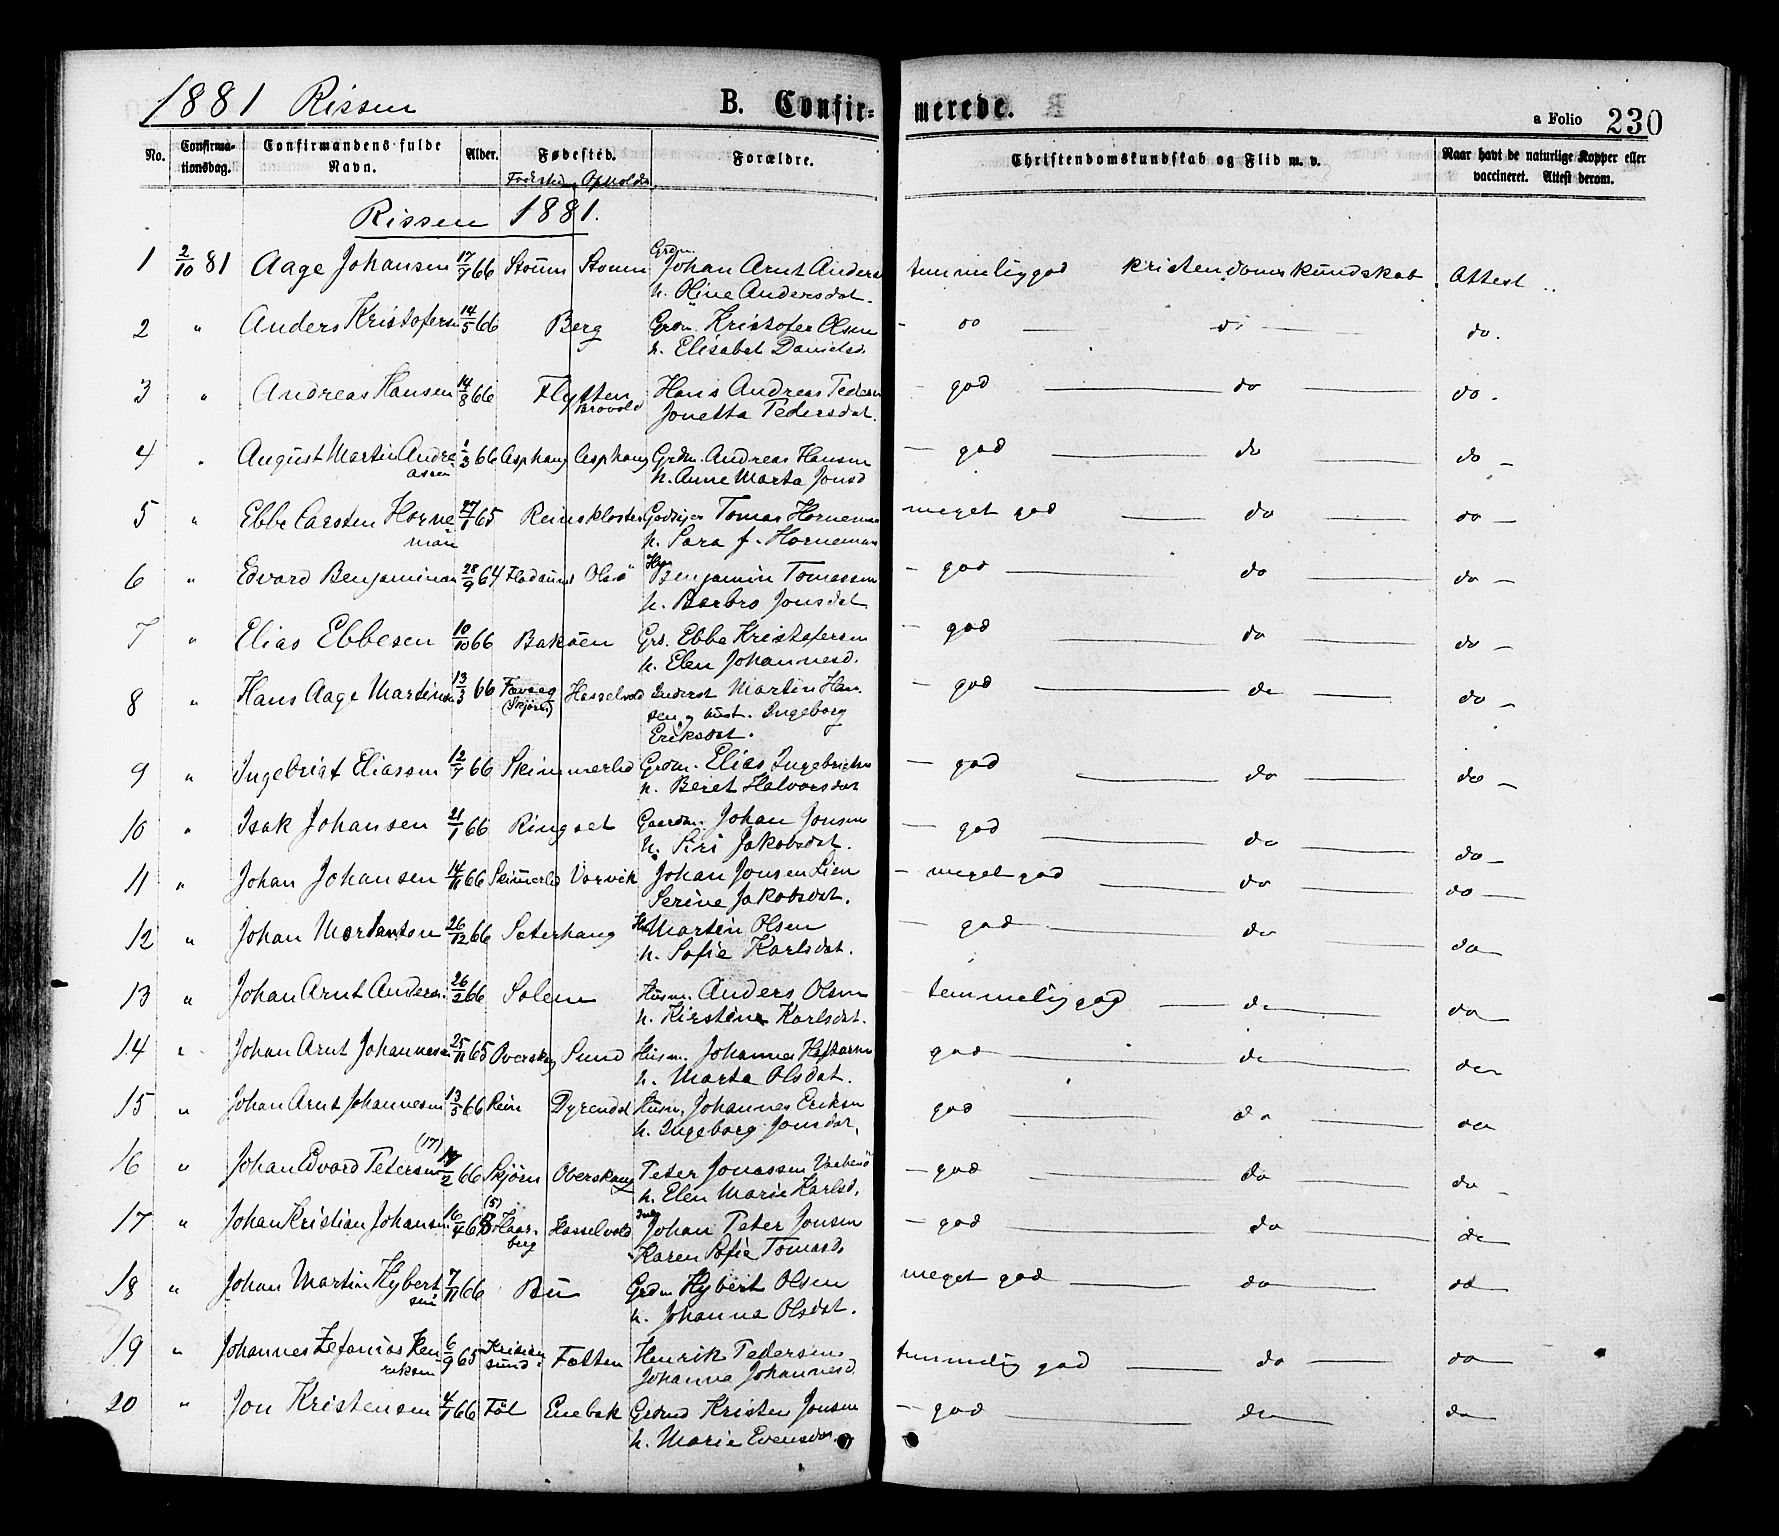 1881 Rissen
B. Confir-
merede.
a Folio 230
No. Confirma-
tionsdag. Confirmandens fulde
Navn. Alder. Fødested. Forældre. Christendomskundskab og Flid m. v. Naar havt de naturlige Kopper eller
vaccineret. Attest derom.
Fødested Opholds
Rissen 1881.
1 2/10 81 Aage Johansen 17/7 66 Stoum Stoum Grdm. Johan Arnt Anders temmelig god kristendomskundskab Attest
h. Oline Andersdat.
2 " Anders Kristofersen 14/5 66 Berg Grdm. Kristofer Olsen - do - do - do.
h. Elisabet Danielsd.
3 " Andreas Hansen 14/8 66 Flytten Hans Andreas Peders - god - do - do.
Brovold Jonetta Pedersdat.
4 " August Martin Andre- 1/3 66 Asphaug Asphaug Grdm. Andreas Hansen - god - do - do -
asen h. Anne Marta Jonsd
5 " Ebbe Carsten Horne 27/1 65 Reinskloster Godseier Tomas Horneman meget god - do - do -
man h. Sara f. Horneman
6 " Edvard Benjaminsen 28/9 64 Flødsund Olsø Hsm Benjamin Tomassen - god - do - do -
h. Barbro Jonsdat
7 " Elias Ebbesen 10/10 66 Bakøen Grd. Ebbe Kristofersen - god - do - do -
h. Elen Johannesd.
8 " Hans Aage Martinsen 13/3 66 Fevaag Hasselvold Inderst Martin Han - god - do - do -
(Skjørn) sen, og hust. Ingeborg
Eriksdat.
9 " Ingebrigt Eliassen 12/7 66 Skimmerlid Grdm. Elias Ingebrigtsen - god - do - do -
h. Beret Halvorsdat
10 " Isak Johansen 21/1 66 Ringset Gaardm. Johan Jonsen - god - do - do -
h. Siri Jakobsdat.
11 " Johan Johansen 14/11 66 Skimerlid Vorvik Johan Jonsen Lien - meget god - do - do -
Serine Jakobsdat.
12 " Johan Mortenson 26/12 66 Seterhaug Hsm Martin Olsen - god - do - do
h. Sofie Karlsdat.
13 " Johan Arnt Anders. 26/2 66 Solem Husm. Anders Olsen - temmelig god - do - do
h. Kirstine Karlsdat.
14 " Johan Arnt Johannesen 25/11 65 Overskog Sund Husm. Johannes - god - do - do
h. Marta Olsdat.
15 " Johan Arnt Johannesen 13/5 66 Rein Dyrendal Husm. Johannes Eriksen god - do - do
h. Ingeborg Jonsdat,
16 " Johan Edvard Petersen (17) 17/2 66 Skjørn Oberskaug Peter Jonassen - god - do - do -
h. Elen Marie Karlsd.
17 " Johan Kristian Johansen 16/4 65 (5) Haar- Hasselvold Inds Johan Peter Jonsen - god - do - do
berg Karen Sofie Tomasd.
18 " Johan Martin Hybert 7/11 66 Bu Grdm Hybert Olsen meget god - do - do
sen h. Johanna Olsdat.
19 " Johannes Zefanias Hen 6/9 65 Kristian Følten Henrik Pedersen temmelig god - do - do
riksen sund. Johanna Johannesd
20 " Jon Kristensen 4/1 66 Føl Enebak Grdmd Kristen Jonsen - god - do - do
h. Marie Evensdat.